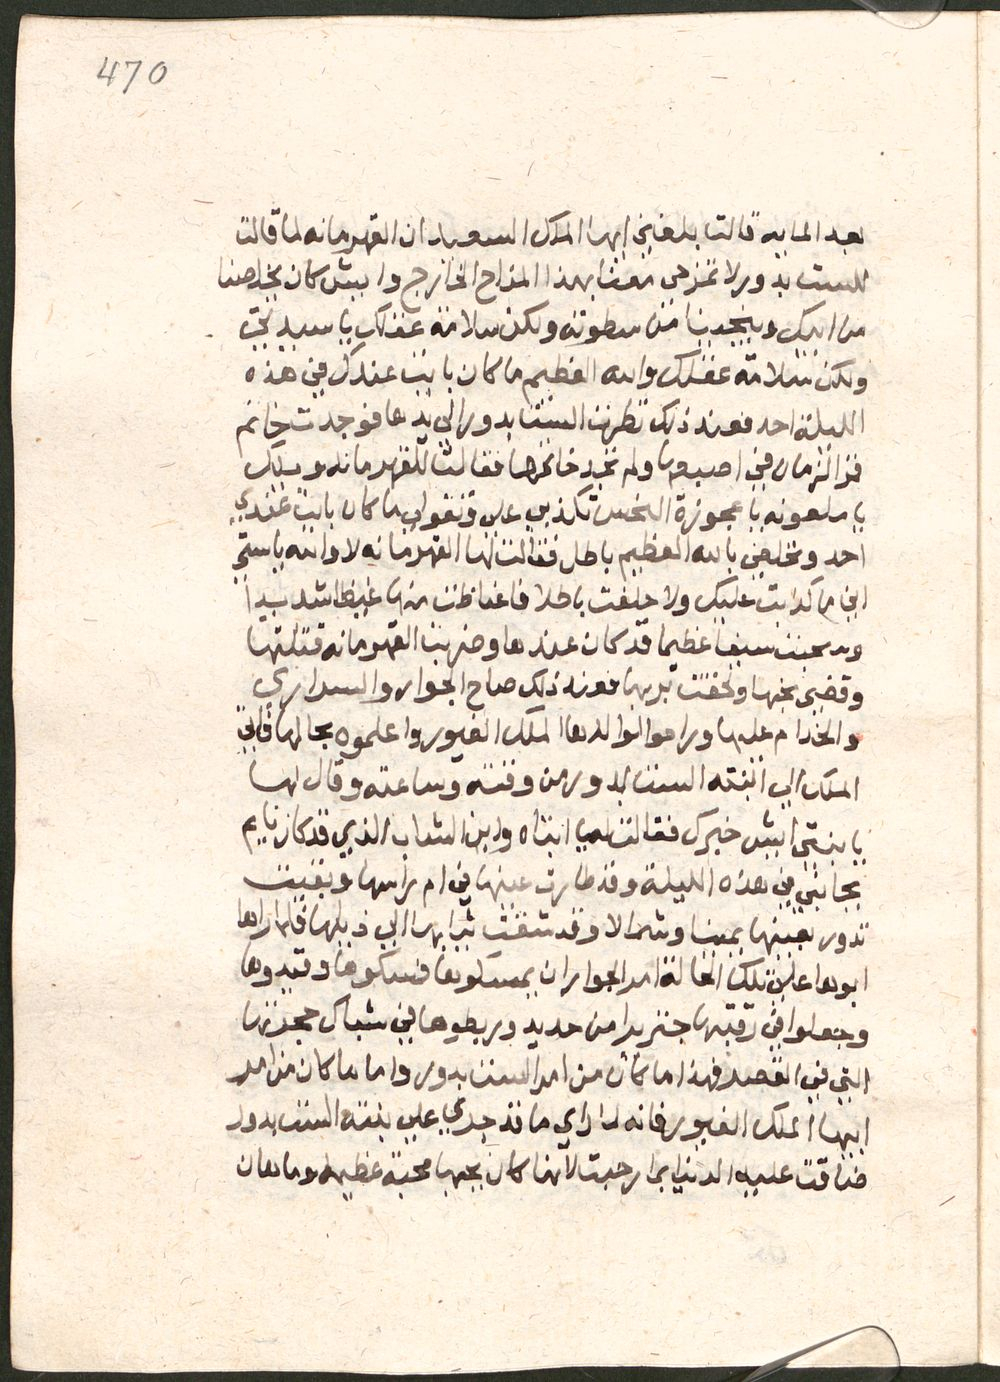 470
بعد المايه قالت بلغني ايها الملك السعيد ان القهرمانه لما قالت
للست بدور لا تمزحي معنا بهذا المزاح الخارج وايش كان يخلصنا
من ابيك ويجيرنا من سطوته ولكن سلامة عقلك يا سيدتي
ولكن سلامة عقلك والله العظيم ما كان بايت عندك في هذه
الليلة احد فعند ذلك نظرت الست بدور الى يدها فوجدت خاتم
قمر الزمان في اصبعها ولم تجد خاتمها فقالت للقهرمانه ويلك
يا ملعونه يا عجوزة النحس تكذبي علي وتقولي ما كان بايت عندي
احد وتحلفي بالله العظيم باطل فقالت لها القهرمانه لا والله يا ستي
اني ما كدبت عليك ولا حلفت باطلا فاغتاظت منها غيظا شديدا
وسحبت سيفا عظيما قد كان عندها وضربت القهرمانه قتلتها
وقضي نحبها ولحقت بربها فعند ذلك صاح الجوار والسراري
والخدام عليها وراحوا لوالدها الملك الغيور واعلموه بحالها فاتي
الملك الي ابنته الست بدور من وقته وساعته وقال لها
يا بنتي ايش خبرك فقالت له يا ابتاه واين الشاب الذي قد كان نايم
بجانبي في هذه الليلة وقد طارت عينها في ام راسها وبقيت
تدور بعينها يمينا وشمالا وقد شقت ثيابها الي ذيلها فلما راها
ابوها علي تلك الحالة امر الجوار ان يمسكوها فمسكوها وقيدوها
وجعلوا في رقبتها جنزيرا من حديد وربطوها في شباك حجرتها
التي في القصر فهذا ما كان من امر الست بدور واما ما كان من امر
ابيها الملك الغيور فانه لما راي ما قد جري علي بنته الست بدور
ضاقت عليه الدنيا بما رحبت لانها كان يحبها محبة عظيمه وما هان